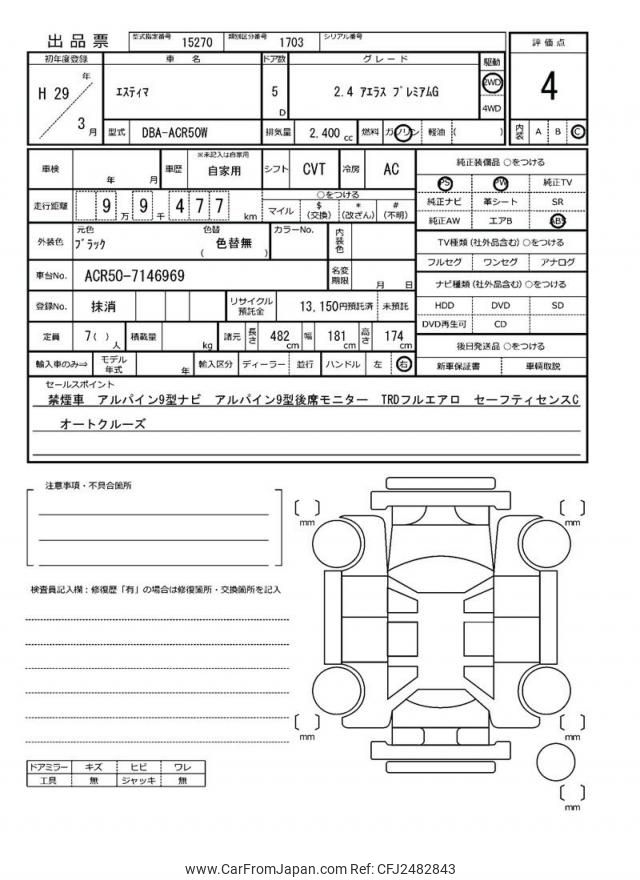 出品票 型式指定番号 15270 類別区分番号 1703 シリアル番号
初年度登録 車 名 ドア数 グレード 駆動 評価点
H 29 年 3 月 エスティマ 5 D 2.4 アエラス プレミアムG 2WD 4WD 4
型式 DBA-ACR50W 排気量 2,400 cc 燃料 ガソリン 軽油 ( ) 内装 A B C
車検 年 月 車歴 ※未記入は自家用 自家用 シフト CVT 冷房 AC
走行距離 9 万 9 千 4 7 7 km ○をつける
マイル $ (交換) * (改ざん) # (不明)
外装色 元色 ブラック 色替 色替無 ( ) カラーNo. 内装色
車台No. ACR50-7146969 名変期限 月 日
登録No. 抹消 リサイクル預託金 13,150円預託済 未預託
定員 7( ) 人 積載量 kg 諸元 長さ 482 cm 幅 181 cm 高さ 174 cm
輸入車のみ⇒ モデル年式 年 輸入区分 ディーラー 並行 ハンドル 左 右
純正装備品 ○をつける
PS PW 純正TV
純正ナビ 革シート SR
純正AW エアB ABS
TV種類 (社外品含む) ○をつける
フルセグ ワンセグ アナログ
ナビ種類 (社外品含む) ○をつける
HDD DVD SD
DVD再生可 CD
後日発送品 ○をつける
新車保証書 車輌取説
セールスポイント
禁煙車 アルパイン9型ナビ アルパイン9型後席モニター TRDフルエアロ セーフティセンスC
オートクルーズ
注意事項・不具合箇所
検査員記入欄：修復歴「有」の場合は修復箇所・交換箇所を記入
mm
mm
mm
mm
mm
ドアミラー キズ ヒビ ワレ
工具 無 ジャッキ 無
www.CarFromJapan.com Ref: CFJ2482843